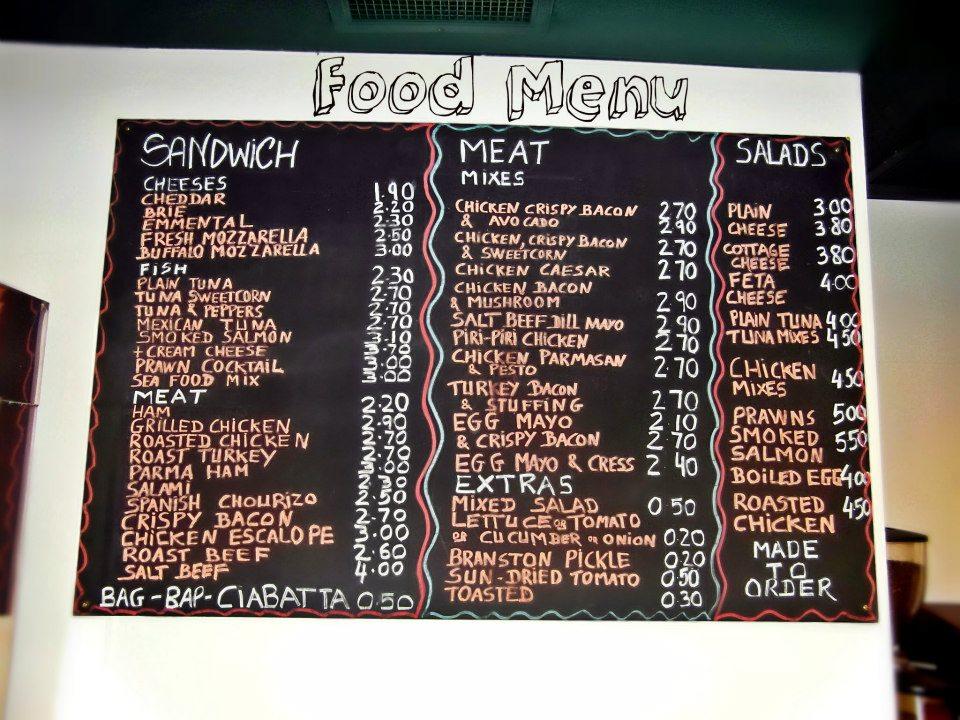 Food Menu
SANDWICH
CHEESES
CHEDDAR 1.90
BRIE 2.20
EMMENTAL 2.30
FRESH MOZZARELLA 2.50
BUFFALO MOZZARELLA 3.00
FISH
PLAIN TUNA 2.30
TUNA SWEETCORN 2.70
TUNA & PEPPERS 2.70
MEXICAN TUNA 2.70
SMOKED SALMON 3.10
+ CREAM CHEESE 3.70
PRAWN COCKTAIL 3.00
SEA FOOD MIX 3.00
MEAT
HAM 2.20
GRILLED CHICKEN 2.90
ROASTED CHICKEN 2.70
ROAST TURKEY 2.70
PARMA HAM 3.00
SALAMI 2.30
SPANISH CHOURIZO 2.50
CRISPY BACON 2.70
CHICKEN ESCALOPE 3.00
ROAST BEEF 2.60
SALT BEEF 4.00
BAG-BAP-CIABATTA 0.50
MEAT
MIXES
CHICKEN CRISPY BACON 2.70
& AVOCADO 2.90
CHICKEN, CRISPY BACON 2.70
& SWEETCORN
CHICKEN CAESAR 2.70
CHICKEN BACON
& MUSHROOM 2.90
SALT BEEF DILL MAYO 2.90
PIRI-PIRI CHICKEN 2.70
CHICKEN PARMASAN 2.70
& PESTO
TURKEY BACON
& STUFFING 2.70
EGG MAYO 2.10
& CRISPY BACON 2.70
EGG MAYO & CRESS 2.40
EXTRAS
MIXED SALAD 0.50
LETTUCE OR TOMATO
OR CUCUMBER OR ONION 0.20
BRANSTON PICKLE 0.20
SUN-DRIED TOMATO 0.50
TOASTED 0.30
SALADS
PLAIN 3.00
CHEESE 3.80
COTTAGE 3.80
CHEESE
FETA 4.00
CHEESE
PLAIN TUNA 4.00
TUNA MIXES 4.50
CHICKEN 4.50
MIXES
PRAWNS 5.00
SMOKED 5.50
SALMON
BOILED EGG 4.00
ROASTED 4.50
CHICKEN
MADE
TO
ORDER